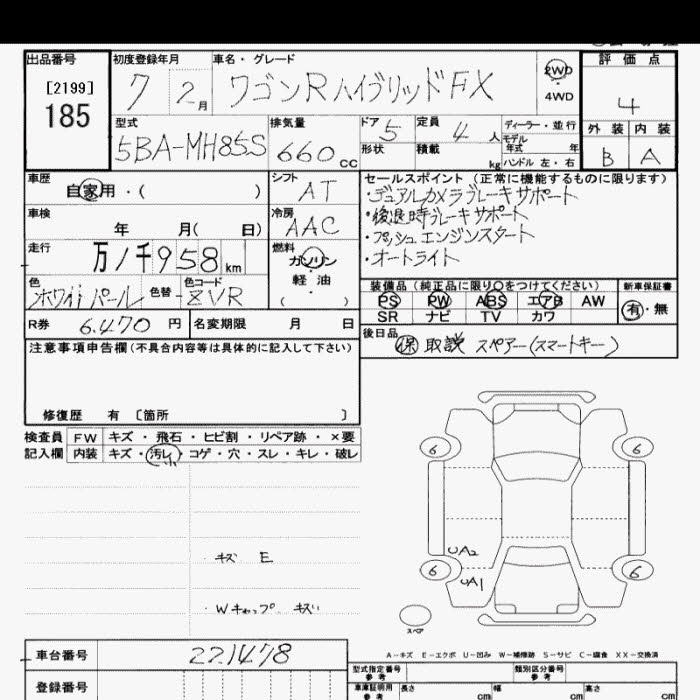 出品番号 初度登録年月 車名・グレード 評価点
[2199] 7 2月 ワゴンRハイブリッドFX 2WD・4WD 4
185
型式 排気量 ドア 5 定員 4人 ディーラー・並行 外装 内装
5BA-MH85S 660cc 形状 積載 kg モデル年式 年 B A
ハンドル 左・右
車歴 シフト セールスポイント(正常に機能するものに限ります)
自家用・( ) AT ・デュアルカメラブレーキサポート
車検 冷房 ・後退時ブレーキサポート
年 月( 日) AAC ・プッシュエンジンスタート
走行 燃料 ・オートライト
万1千958km ガソリン
軽油
( )
色 色替 色コード 装備品(純正品に限り○をつけてください) 新車保証書
ホワイトパール ZVR PS PW ABS エアB AW 有・無
SR ナビ TV カワ
R券 6.470円 名変期限 月 日 後日品
保 取説 スペアー(スマートキー)
注意事項申告欄(不具合内容等は具体的に記入して下さい)
修復歴 有 〔箇所 〕
検査員 FW キズ・飛石・ヒビ割・リペア跡・×要
記入欄 内装 キズ・汚レ・コゲ・穴・スレ・キレ・破レ
小
6 6
UA2
6 UA1 6
・キズ E
・Wキャップ キズ
スペア
A-キズ E-エクボ U-凹み W-補修跡 S-サビ C-腐食 XX-交換済
車台番号 221478
型式指定番号 参考 類別区分番号 参考
登録番号 車庫証明用 参考 長さ cm 幅 cm 高さ cm